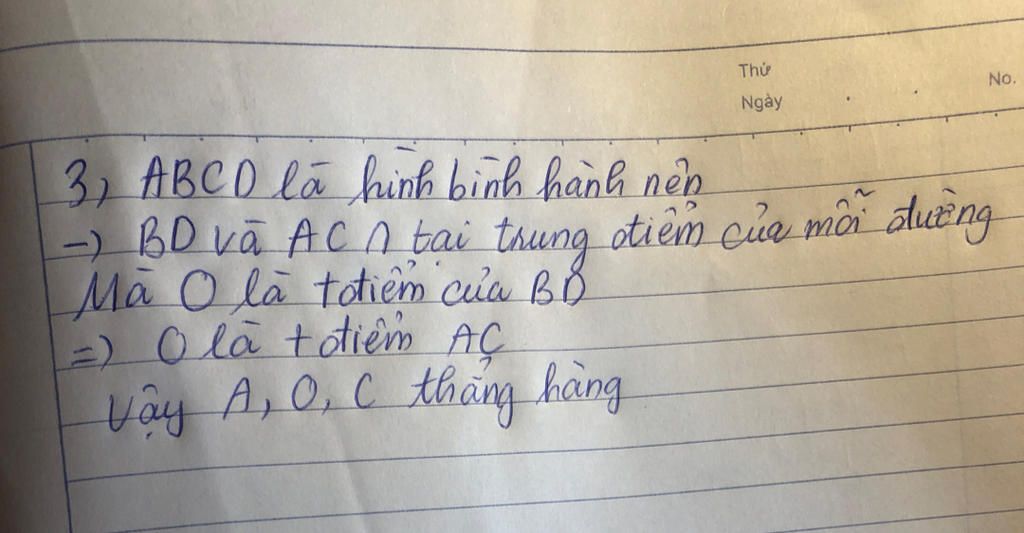 Thứ
Ngày
No.
3) ABCD là hình bình hành nên
→ BD và AC ∩ tại trung điểm của mỗi đường
Mà O là tđiểm của BD
=> O là tđiểm AC
Vậy A, O, C thẳng hàng